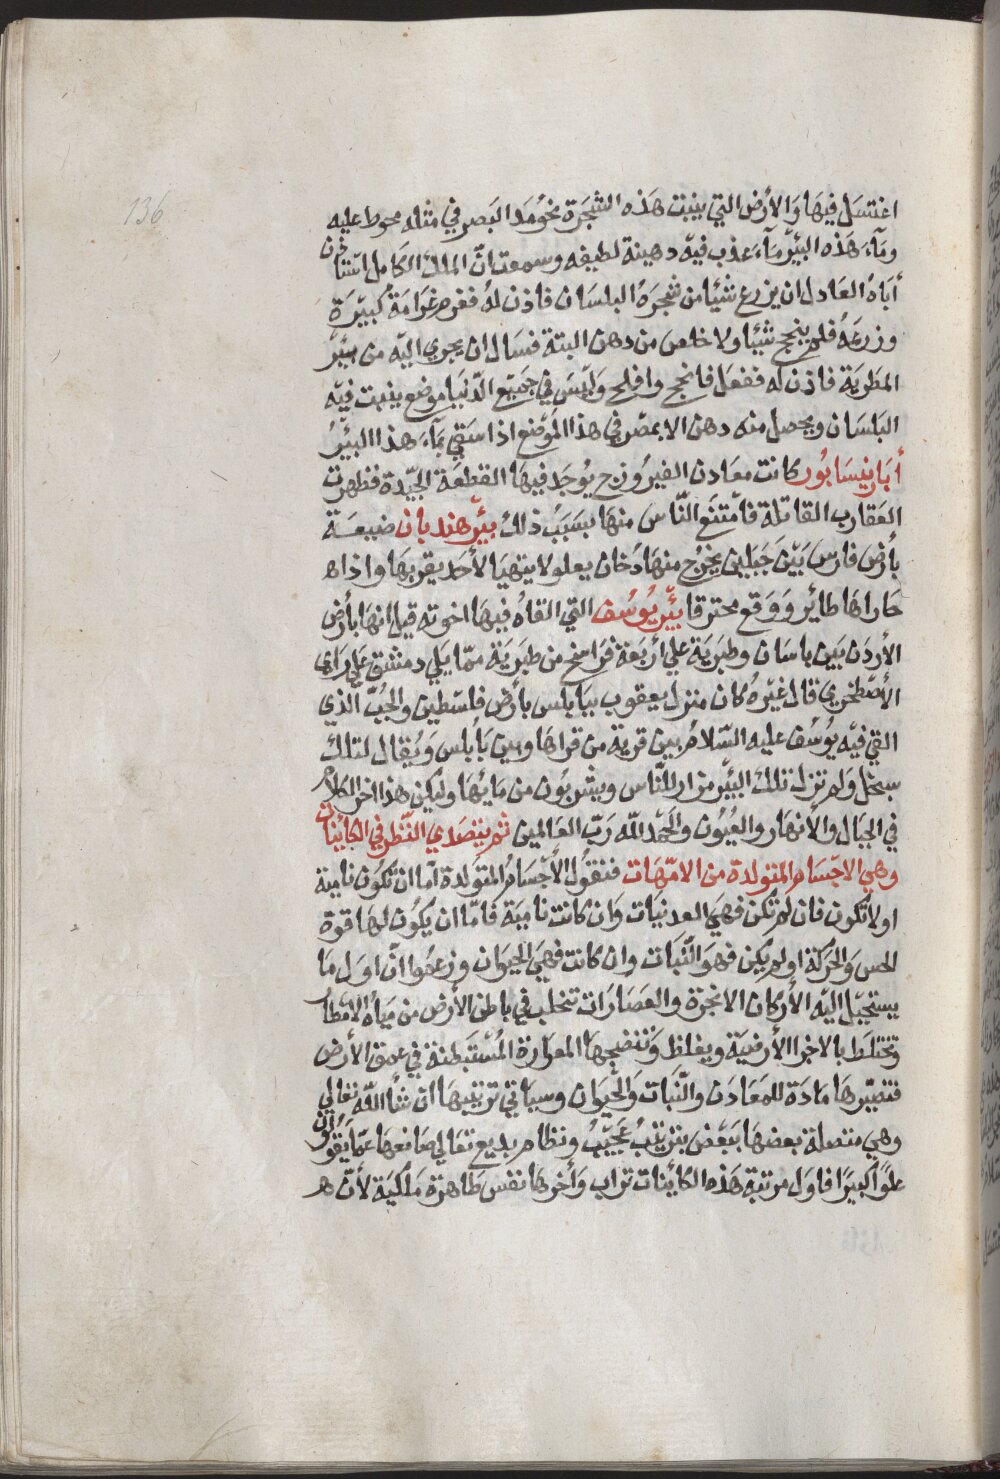 136
اغتسل فيها والأرض التي ينبت هذه الشجرة نحو مد البصر في مثله محوط عليه
وماء هذه البير ماء عذب فيه دهينة لطيفه وسمعت ان الملك الكامل استأذن
أباه العادل ان يزرع شيئا من شجرة البلسان فاذن له فغرم غرامة كبيرة
وزرعه فلم ينجح شيئا ولا خلص من دهن البتة فسال ان يجري اليه من بير
المطرية فاذن له ففعل فانجح وافلح وليس في جميع الدنيا موضع ينبت فيه
البلسان ويحصل منه دهن الا بمصر في هذا الموضع اذا سقي بماء هذا البير
أبار نيسابور كانت معادن الفيروزج يوجد فيها القطعة الجيدة فظهرت
العقارب القاتلة فامتنع الناس منها بسبب ذلك بير هنديان ضيعة
بأرض فارس بين جبلين يخرج منها دخان يعلو لا يتهيا لأحد يقربها واذا ه
حاراها طائر ووقع محترقا بير يوسف التي القاه فيها اخوته قيل انها بأرض
الأردن بين باسان وطبرية علي اربعة فراسخ من طبرية مما يلي دمشق علي راي
الأصطخري قال غيره كان منزل يعقوب بيابلس بأرض فلسطين والجب الذي
القي فيه يوسف عليه السلام بين قرية من قراها وبين يابلس ويقال لتلك
سنجل ولم تزل تلك البير مزار للناس ويشربون من مائها وليكن هذا اخر الكلام
في الجبال والأنهار والعيون والحمد لله رب العالمين ثم يتصدي النظر في الكاينات
وهي الاجسام المتولدة من الامهات فنقول الأجسام المتولدة اما ان تكون نامية
او لا تكون فان لم تكن فهي المعدنيات وان كانت نامية فاما ان يكون لها قوة
الحس والحركة او لم يكن فهو النبات وان كانت فهي الحيوان وزعموا ان اول ما
يستحيل اليه الأركان الابخرة والعصارات تتحلب في باطن الأرض من مياه الامطار
وتختلط بالاجزا الأرضية ويغلظ وتنضجها الحرارة المستبطنة في عمق الأرض
فتصيرها مادة للمعادن والنبات والحيوان وسياتي ترتيبها ان شا الله تعالي
وهي متصلة بعضها ببعض بترتيب عجيب ونظام بديع تعالي صانعها عما يقولون
علوا كبيرا فاول مرتبة هذه الكائنات تراب وأخرها نفس طاهرة ملكية لأن ه